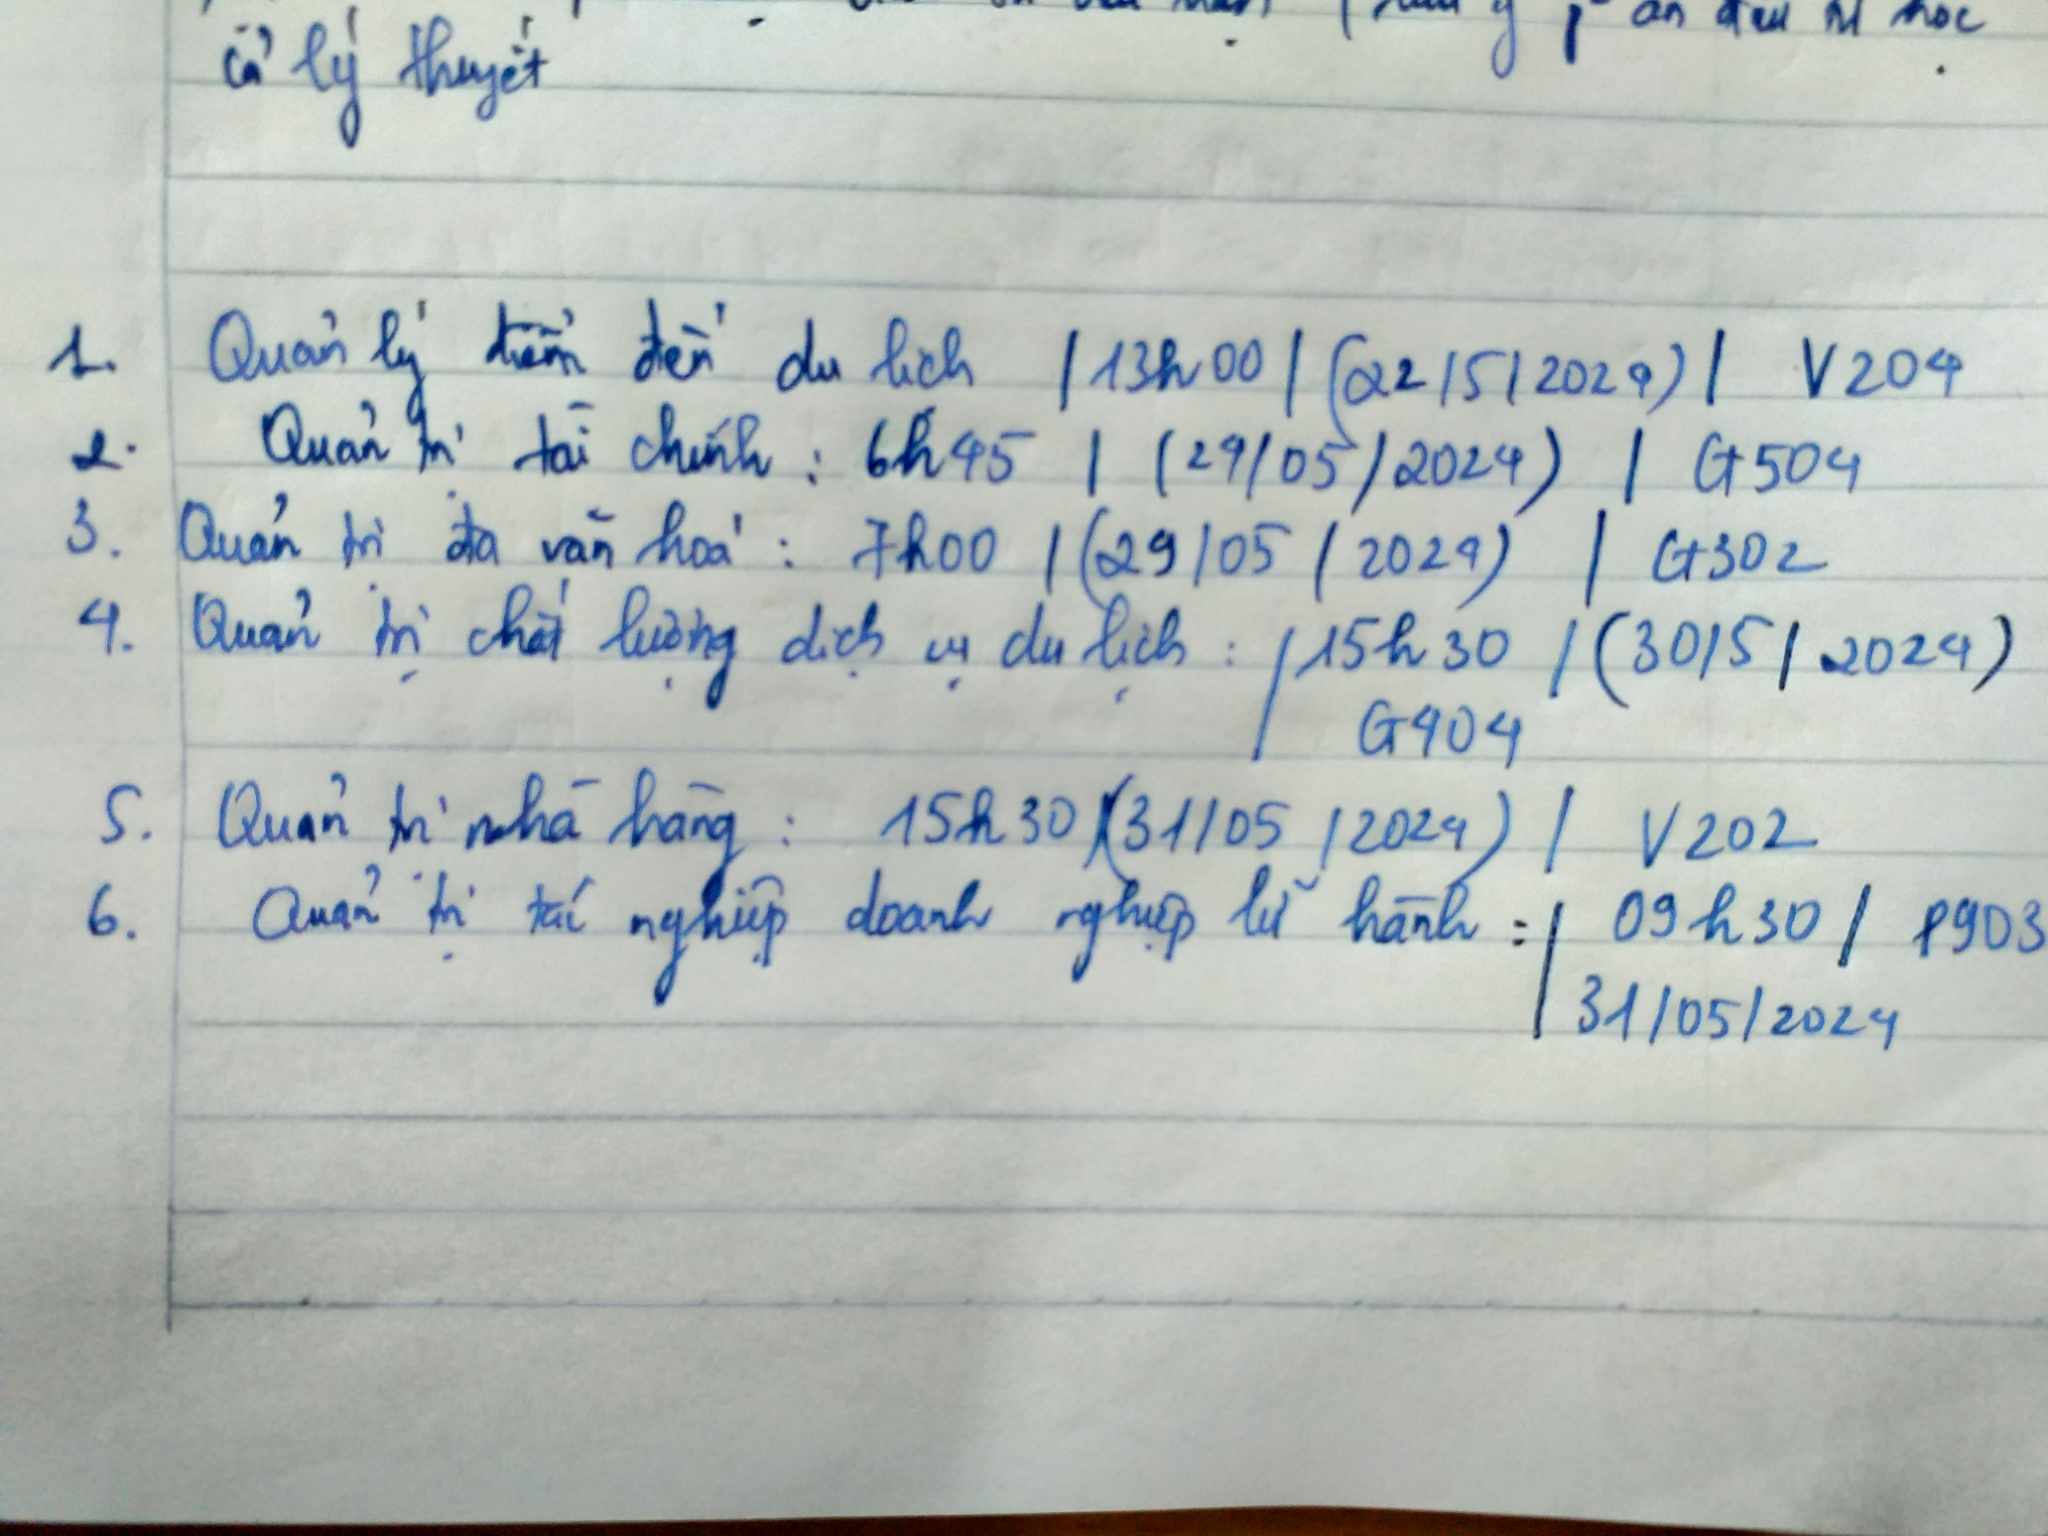 học
cả lý thuyết
1. Quản lý điểm đến du lịch | 13h00 | (22/5/2024) | V204
2. Quản trị tài chính : 6h45 | (29/05/2024) | G504
3. Quản trị đa văn hoá : 7h00 | (29/05/2024) | G302
4. Quản trị chất lượng dịch vụ du lịch : | 15h30 | (30/5/2024)
| G404
5. Quản trị nhà hàng : 15h30 | (31/05/2024) | V202
6. Quản trị tác nghiệp doanh nghiệp lữ hành : | 09h30 | P903
| 31/05/2024